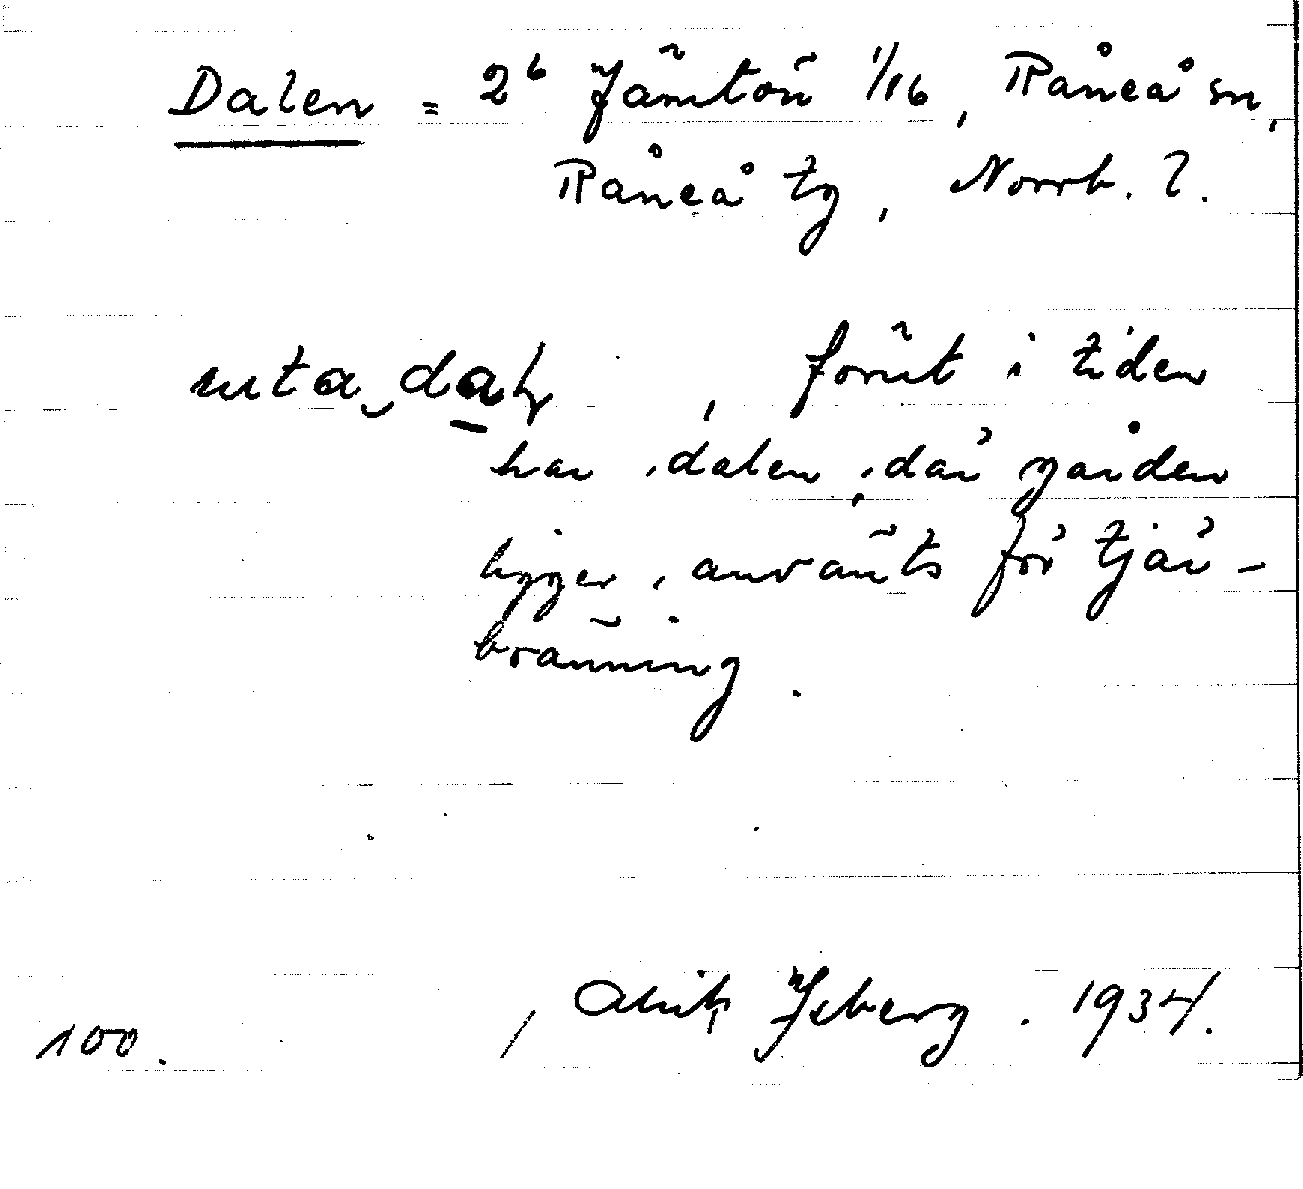 Dalen = 2⁶ Jämtön 1/16, Råneå sn,
Råneå tg, Norrb. l.
förut i tiden
har dalen, där gården
ligger, använts för tjär-
bränning.
Isberg. 1934.
100.